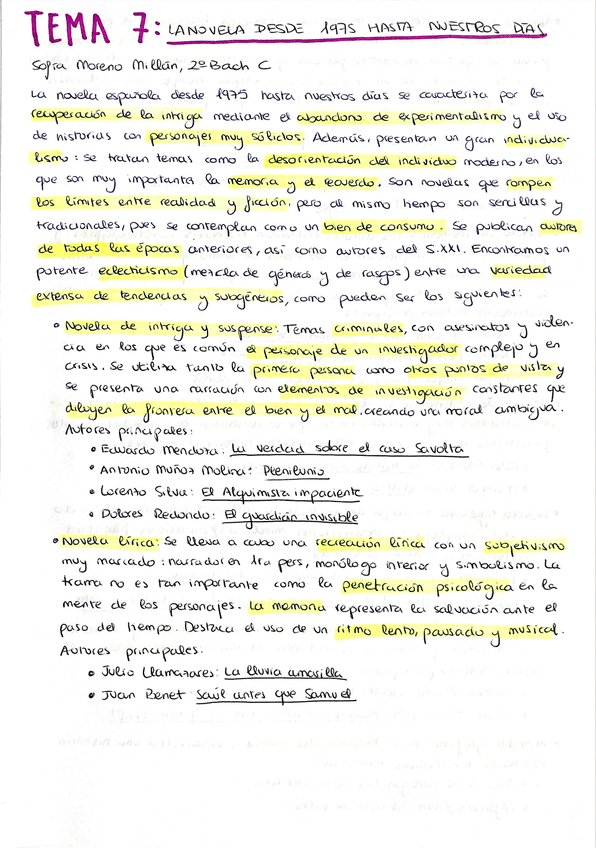 TEMA 7: LA NOVELA DESDE 1975 HASTA NUESTROS DÍAS
Sofía Moreno Millán, 2º Bach C
La novela española desde 1975 hasta nuestros días se caracteriza por la
recuperación de la intriga mediante el abandono de experimentalismo y el uso
de historias con personajes muy sólidos. Además, presentan un gran individua-
lismo: se tratan temas como la desorientación del individuo moderno, en los
que son muy importantes la memoria y el recuerdo. Son novelas que rompen
los límites entre realidad y ficción, pero al mismo tiempo son sencillas y
tradicionales, pues se contemplan como un bien de consumo. Se publican autores
de todas las épocas anteriores, así como autores del S.XXI. Encontramos un
potente eclecticismo (mezcla de géneros y de rasgos) entre una variedad
extensa de tendencias y subgéneros, como pueden ser los siguientes:
• Novela de intriga y suspense: Temas criminales, con asesinatos y violen-
cia en los que es común el personaje de un investigador complejo y en
crisis. Se utiliza tanto la primera persona como otros puntos de vista y
se presenta una narración con elementos de investigación constantes que
diluyen la frontera entre el bien y el mal, creando una moral ambigua.
Autores principales:
• Eduardo Mendoza: La verdad sobre el caso Savolta
• Antonio Muñoz Molina: Plenilunio
• Lorenzo Silva: El Alquimista impaciente
• Dolores Redondo: El guardián invisible
• Novela lírica: Se lleva a cabo una recreación lírica con un subjetivismo
muy marcado: narrador en 1ra pers, monólogo interior y simbolismo. La
trama no es tan importante como la penetración psicológica en la
mente de los personajes. La memoria representa la salvación ante el
paso del tiempo. Destaca el uso de un ritmo lento, pausado y musical.
Autores principales:
• Julio Llamazares: La lluvia amarilla
• Juan Benet Saúl antes que Samuel